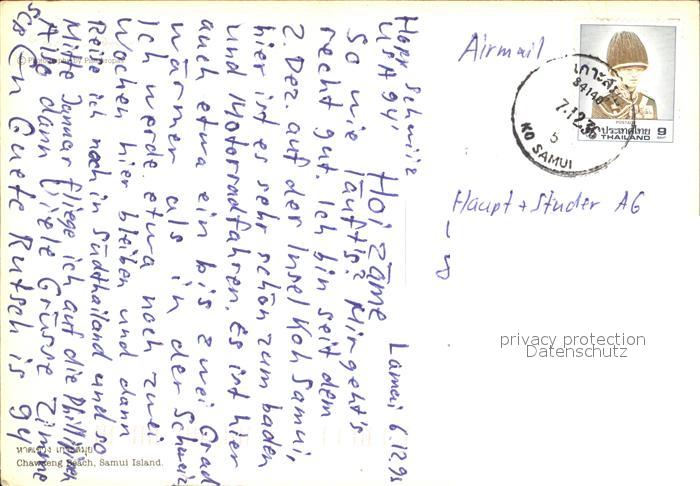 Hopp Schwiiz
USA 94!
Lamai 6.12.93
Hoi, zäme
So wie läuft's? Mir geht's
recht gut. Ich bin seit dem
2. Dez. auf der Insel Koh Samui,
hier ist es sehr schön zum baden
und Motorradfahren. Es ist hier
auch etwa ein bis zwei Grad
wärmer als in der Schweiz
Ich werde etwa noch zwei
Wochen hier bleiben und dann
Reise ich noch in Südthailand und so
Mitte Januar fliege ich auf die Phillipinen
Also dann Viele Grüsse Zimme
En Guete Rutsch is 94
Airmail
Haupt + Studer AG
เกาะสมุย
84140
7.12.36
5
KO SAMUI
POSTAGE
ประเทศไทย 9
THAILAND BAHT
privacy protection
Datenschutz
© Photography by
หาดเฉวง เกาะสมุย
Chaweng Beach, Samui Island.